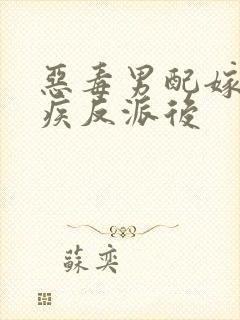 惡毒男配嫁
疾反派後
蘇奕